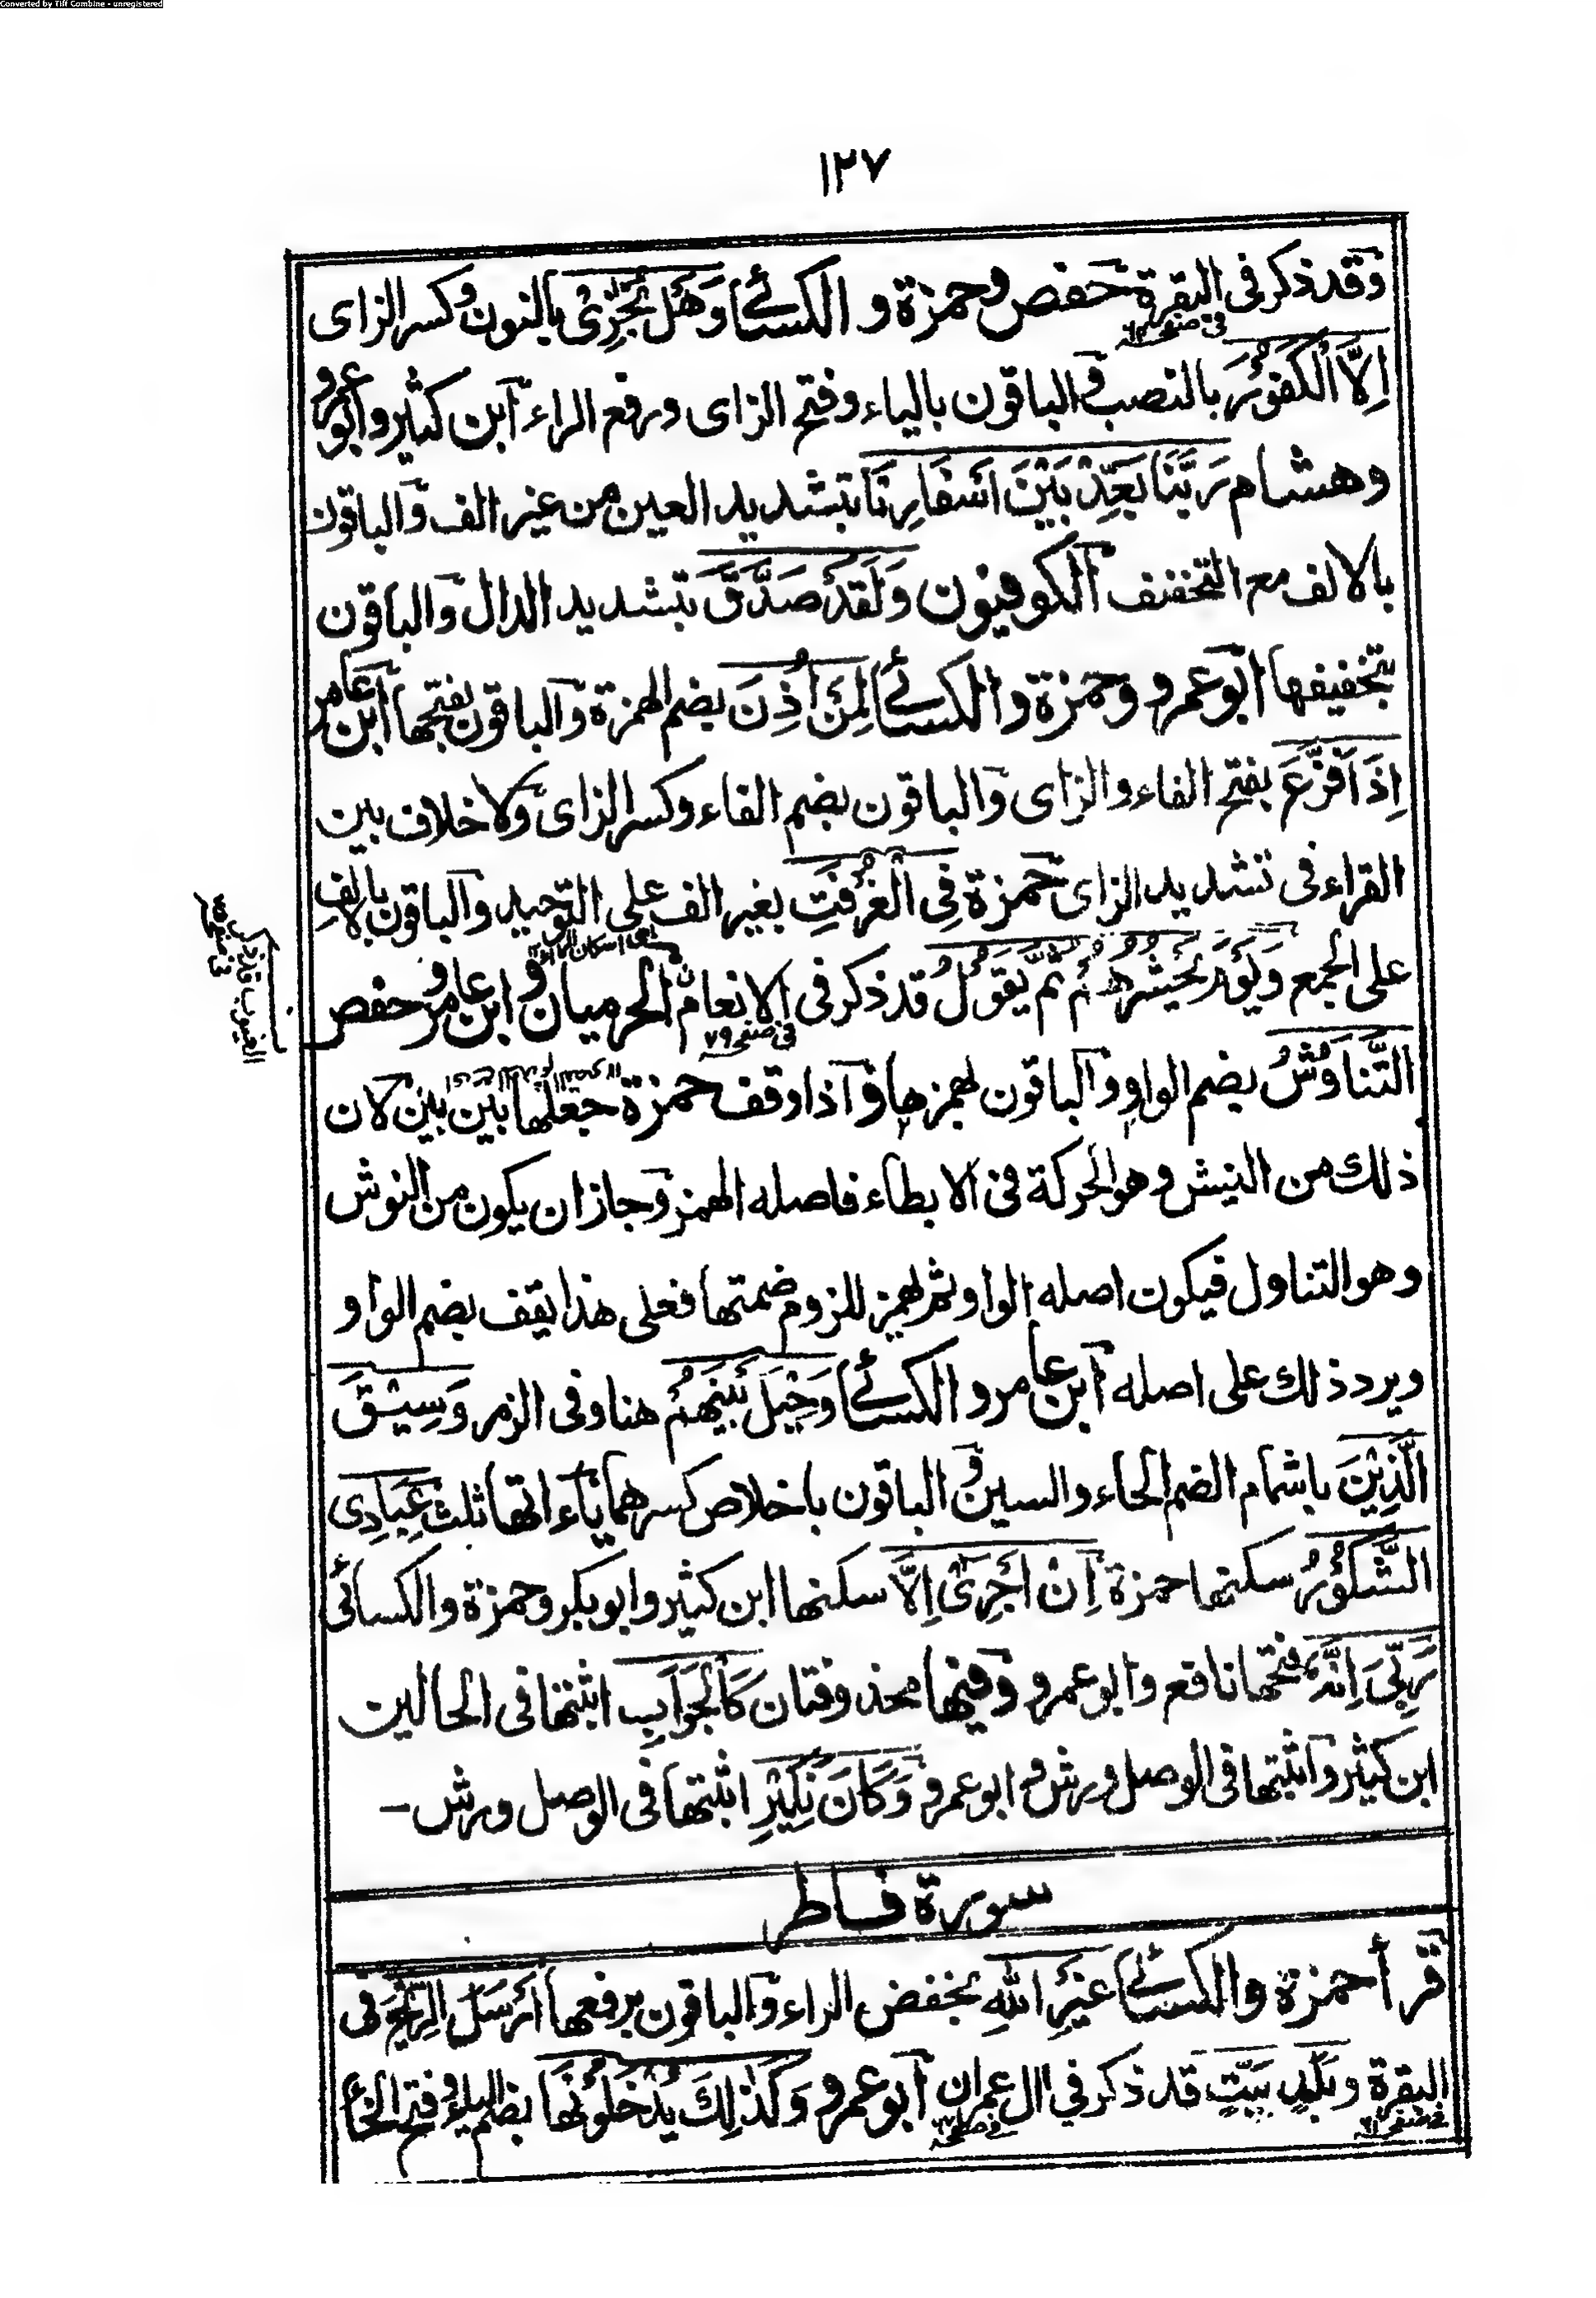 Converted by Tiff Combine - unregistered
١٢٧
وقد ذكر فى البقرة حفص وحمزة و الكسائے وَهَلْ نُجٰزِىْ بالنون وكسر الزاى
فى صفحه
اِلَّا الْكَفُوْرَ بالنصب والباقون بالياء وفتح الزاى ورفع الراء ابن كثير وابو عمرو
وهشام رَبَّنَا بَعِّدْ بَيْنَ اَسْفَارِنَا بتشديد العين من غير الف والباقون
بالالف مع التخفيف الكوفيون وَلَقَدْ صَدَّقَ بتشديد الدال والباقون
بتخفيفها ابو عمرو وحمزة والكسائے لِمَنْ اُذِنَ بضم الهمزة والباقون بفتحها ابن عامر
اِذَا فَزَّعَ بفتح الفاء والزاى والباقون بضم الفاء وكسر الزاى ولا خلاف بين
القراء فى تشديد الزاى حمزة فِى الْغُرْفَتِ بغير الف على التوحيد والباقون بالالف
اى اسكان الراء
على الجمع وَيَوْمَ يَحْشُرُهُمْ ثُمَّ يَقُوْلُ قد ذكر فى الانعام الحرميان و ابن عامر وحفص
فى صفحه ٧٩
الغيوب قد ذكر فى
التَّنَاوُشُ بضم الواو والباقون بهمزها واذا وقف حمزة جعلها بين بين لان
ذلك من النيش وهو الحركة فى الابطاء فاصله الهمز وجاز ان يكون من النوش
وهو التناول فيكون اصله الواو ثم يهمز للزوم ضمتها فعلى هذا يقف بضم الواو
ويرد ذلك على اصله ابن عامر و الكسائے وَحِيْلَ بَيْنَهُمْ هنا وفى الزمر وَسِيْقَ
الَّذِيْنَ باشمام الضم الحاء والسين و الباقون باخلاص كسرهما ياءاتها ثلث عِبَادِى
الشَّكُوْرُ سكنها حمزة اِنْ اَجْرِىَ اِلَّا سكنها ابن كثير وابو بكر وحمزة والكسائى
رَبِّىَ اِنَّهٗ فتحها نافع وابو عمرو وفيها محذوفتان كَالْجَوَابِ اثبتها فى الحالين
ابن كثير واثبتها فى الوصل ورش و ابو عمرو وَكَانَ نَكِيْرِ اثبتها فى الوصل ورش –
سورة فاطر
قرأ حمزة والكسائے غَيْرِ اللّٰهِ بخفض الراء والباقون برفعها اَرْسَلَ الرِّيٰحَ فى
البقرة وبَلَدٍ مَيِّتٍ قد ذكر فى ال عمران ابو عمرو وَكَذٰلِكَ يُدْخَلُوْنَهَا بضم الياء وفتح الخاء
فى صفحه
فى صفحه